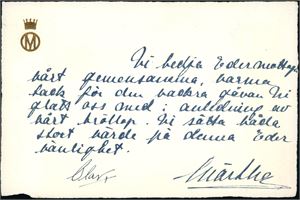 M
Vi bedja Eder mottaga
vårt gemensamma, varma
tack för den vackra gåvan Ni
glatt oss med i anledning av
vårt bröllop. Vi sätta båda
stort värde på denna Eder
vänlighet.
Olav Märtha